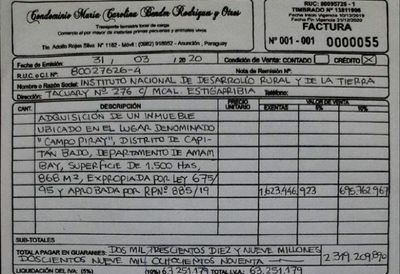 Condominio Maria Carolina Bender Rodriguez y Otros
Transporte terrestre local de carga
Comercio al por mayor de materias primas pecuarias y animales vivos
Tte. Adolfo Rojas Silva Nº 1182 - Móvil: (0982) 918652 - Asunción, Paraguay
RUC: 80095726 - 1
TIMBRADO Nº 13811998
Fecha Inicio Vigencia 10/12/2019
Fecha Fin Vigencia 31/12/2020
FACTURA
Nº 001 - 001 0000055
Fecha de Emisión: 31 / 03 / 20 20 Condición de Venta: CONTADO CRÉDITO X
R.U.C. o C.I. Nº 80027626-4 Nota de Remisión Nº:
Nombre o Razón Social: INSTITUTO NACIONAL DE DESARROLLO RURAL Y DE LA TIERRA
Dirección: TACUARY Nº 276 C/ MCAL. ESTIGARRIBIA
CANT. DESCRIPCIÓN PRECIO UNITARIO VALOR DE VENTA
EXENTAS 5% 10%
ADQUISICIÓN DE UN INMUEBLE
UBICADO EN EL LUGAR DENOMINADO
"CAMPO PIRAY", DISTRITO DE CAPI-
TÁN BADO, DEPARTAMENTO DE AMAM
BAY, SUPERFICIE DE 1.500 HAS,
868 M2, EXPROPIADA POR LEY 675/
95 Y APROBADA POR RPNº 885/19 1.623.446.923 695.762.967
SUB-TOTALES
TOTAL A PAGAR EN GUARANIES: DOS MIL TRESCIENTOS DIEZ Y NUEVE MILLONES
DOSCIENTOS NUEVE MIL OCHOCIENTOS NOVENTA 2.319.209.890
LIQUIDACIÓN DEL IVA: (5%) (10%) 63.251.179 TOTAL I.V.A.: 63.251.179